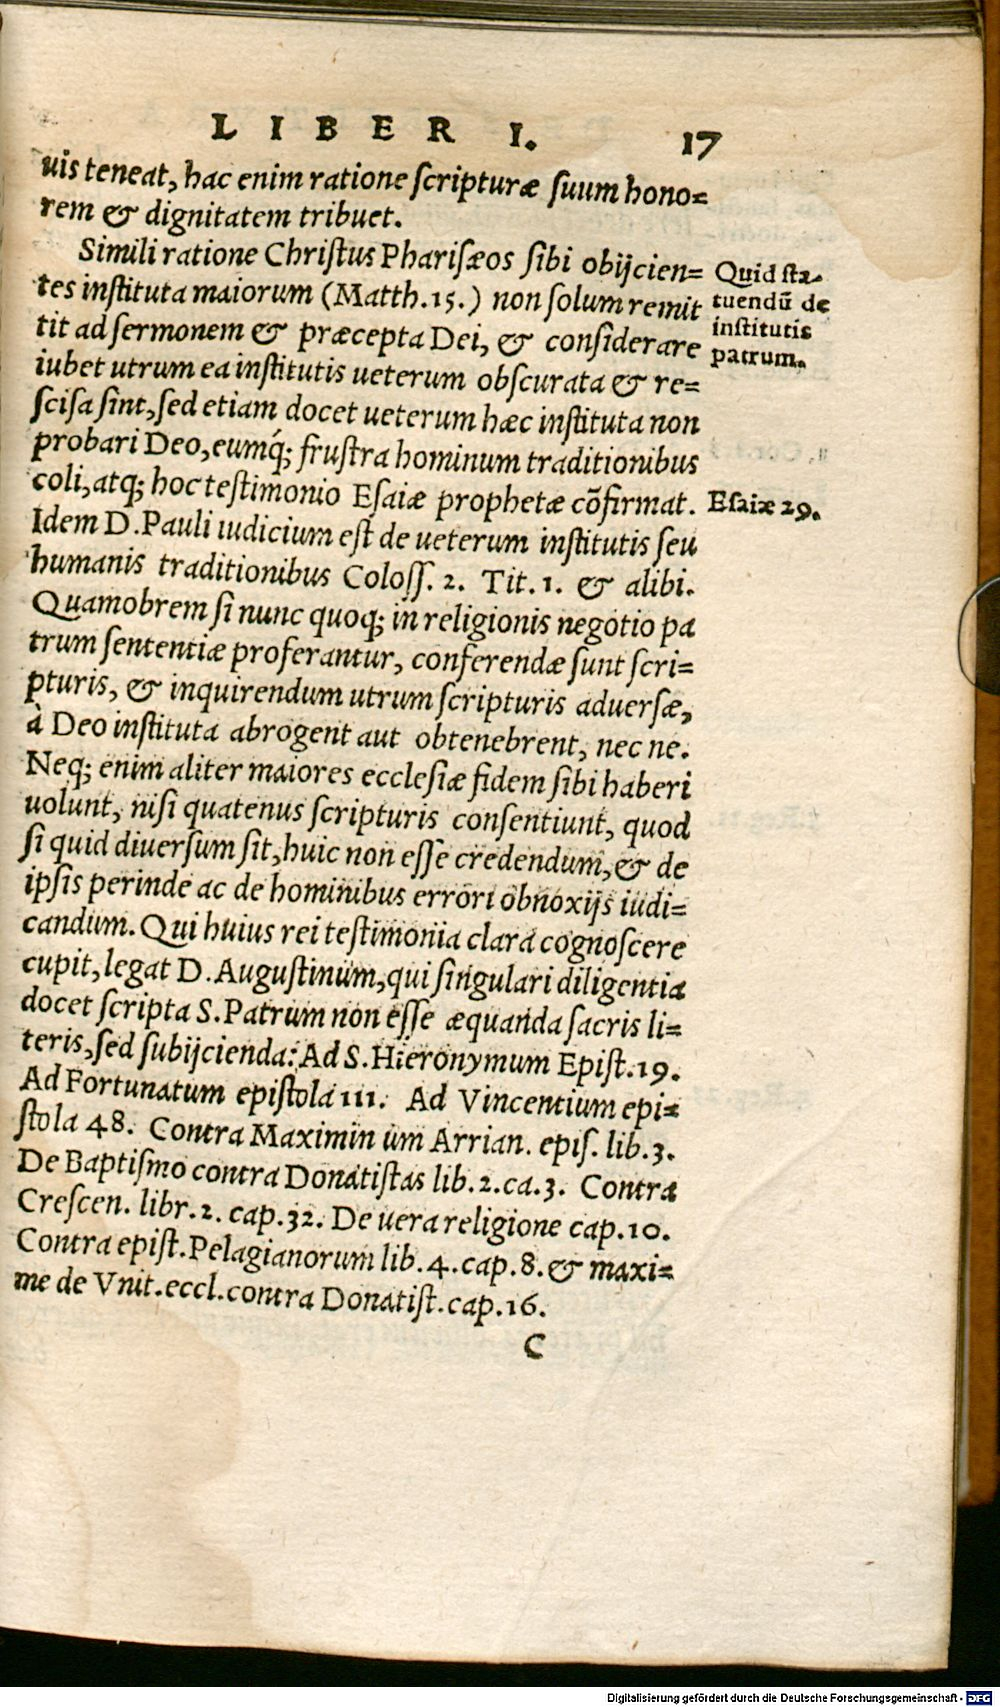 LIBER I. 17
uis teneat, hac enim ratione ſcripturæ ſuum hono=
rem & dignitatem tribuet.
Simili ratione Chriſtus Phariſæos ſibi obijcien=
tes inſtituta maiorum (Matth.15.) non ſolum remit
tit ad ſermonem & præcepta Dei, & conſiderare
iubet utrum ea inſtitutis ueterum obſcurata & re=
ſciſa ſint, ſed etiam docet ueterum hæc inſtituta non
probari Deo, eumq́; fruſtra hominum traditionibus
coli, atq; hoc teſtimonio Eſaiæ prophetæ cõfirmat.
Idem D. Pauli iudicium eſt de ueterum inſtitutis ſeu
humanis traditionibus Coloſſ. 2. Tit. 1. & alibi.
Quamobrem ſi nunc quoq; in religionis negotio pa
trum ſententiæ proferantur, conferendæ ſunt ſcri=
pturis, & inquirendum utrum ſcripturis aduerſæ,
à Deo inſtituta abrogent aut obtenebrent, nec ne.
Neq; enim aliter maiores eccleſiæ fidem ſibi haberi
uolunt, niſi quatenus ſcripturis conſentiunt, quod
ſi quid diuerſum ſit, huic non eſſe credendum, & de
ipſis perinde ac de hominibus errori obnoxijs iudi=
candum. Qui huius rei teſtimonia clara cognoſcere
cupit, legat D. Auguſtinum, qui ſingulari diligentia
docet ſcripta S. Patrum non eſſe æquanda ſacris li=
teris, ſed ſubijcienda: Ad S. Hieronymum Epiſt.19.
Ad Fortunatum epiſtola 111. Ad Vincentium epi=
ſtola 48. Contra Maximin um Arrian. epiſ. lib.3.
De Baptiſmo contra Donatiſtas lib.2.ca.3. Contra
Creſcen. libr.2. cap.32. De uera religione cap.10.
Contra epiſt. Pelagianorum lib.4.cap.8.& maxi=
me de Vnit.eccl.contra Donatiſt.cap.16.
C
Quid ſta-
tuendũ de
inſtitutis
patrum.
Eſaiæ 29.
Digitalisierung gefördert durch die Deutsche Forschungsgemeinschaft - DFG